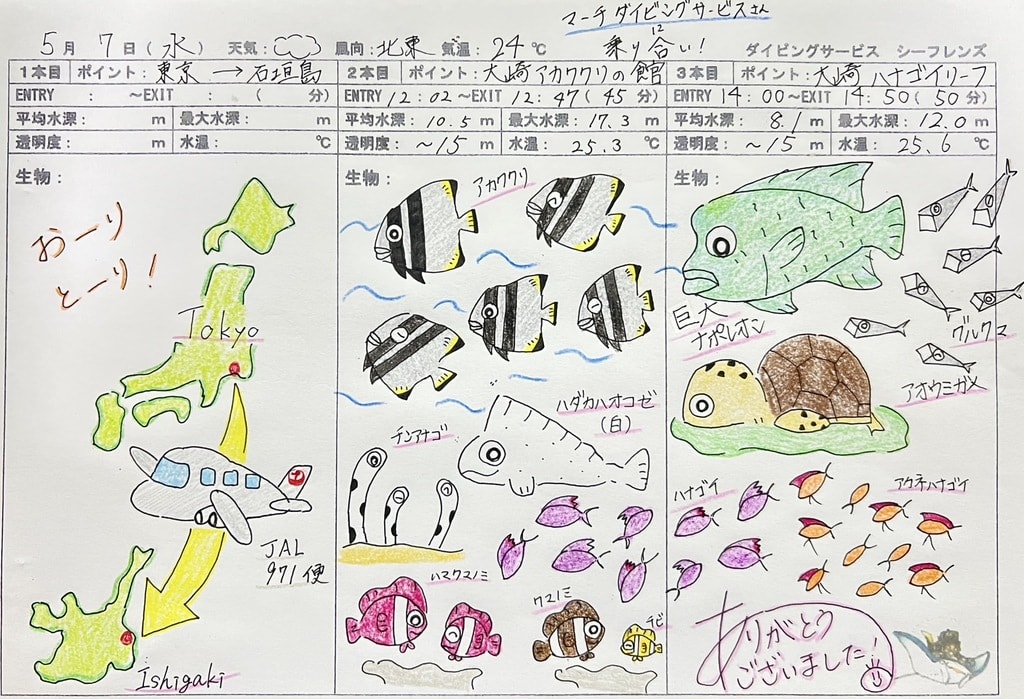 マーチ ダイビングサービスさん
に
乗り合い!
5月 7日(水) 天気: 風向:北東 気温:24℃
ダイビングサービス シーフレンズ
1本目 ポイント:東京→石垣島
ENTRY : ~EXIT : ( 分)
平均水深: m 最大水深: m
透明度: m 水温: ℃
生物:
おーり
とーり!
Tokyo
JAL
971便
Ishigaki
2本目 ポイント:大崎アカククリの館
ENTRY 12:02~EXIT 12:47(45分)
平均水深:10.5m 最大水深:17.3m
透明度:~15m 水温:25.3℃
生物:
アカククリ
ハダカハオコゼ
(白)
チンアナゴ
ハマクマノミ
クマノミ
チビ
3本目 ポイント:大崎ハナゴイリーフ
ENTRY 14:00~EXIT 14:50(50分)
平均水深:8.1m 最大水深:12.0m
透明度:~15m 水温:25.6℃
生物:
巨大
ナポレオン
グルクマ
アオウミガメ
ハナゴイ
アカネハナゴイ
ありがとう
ございました!